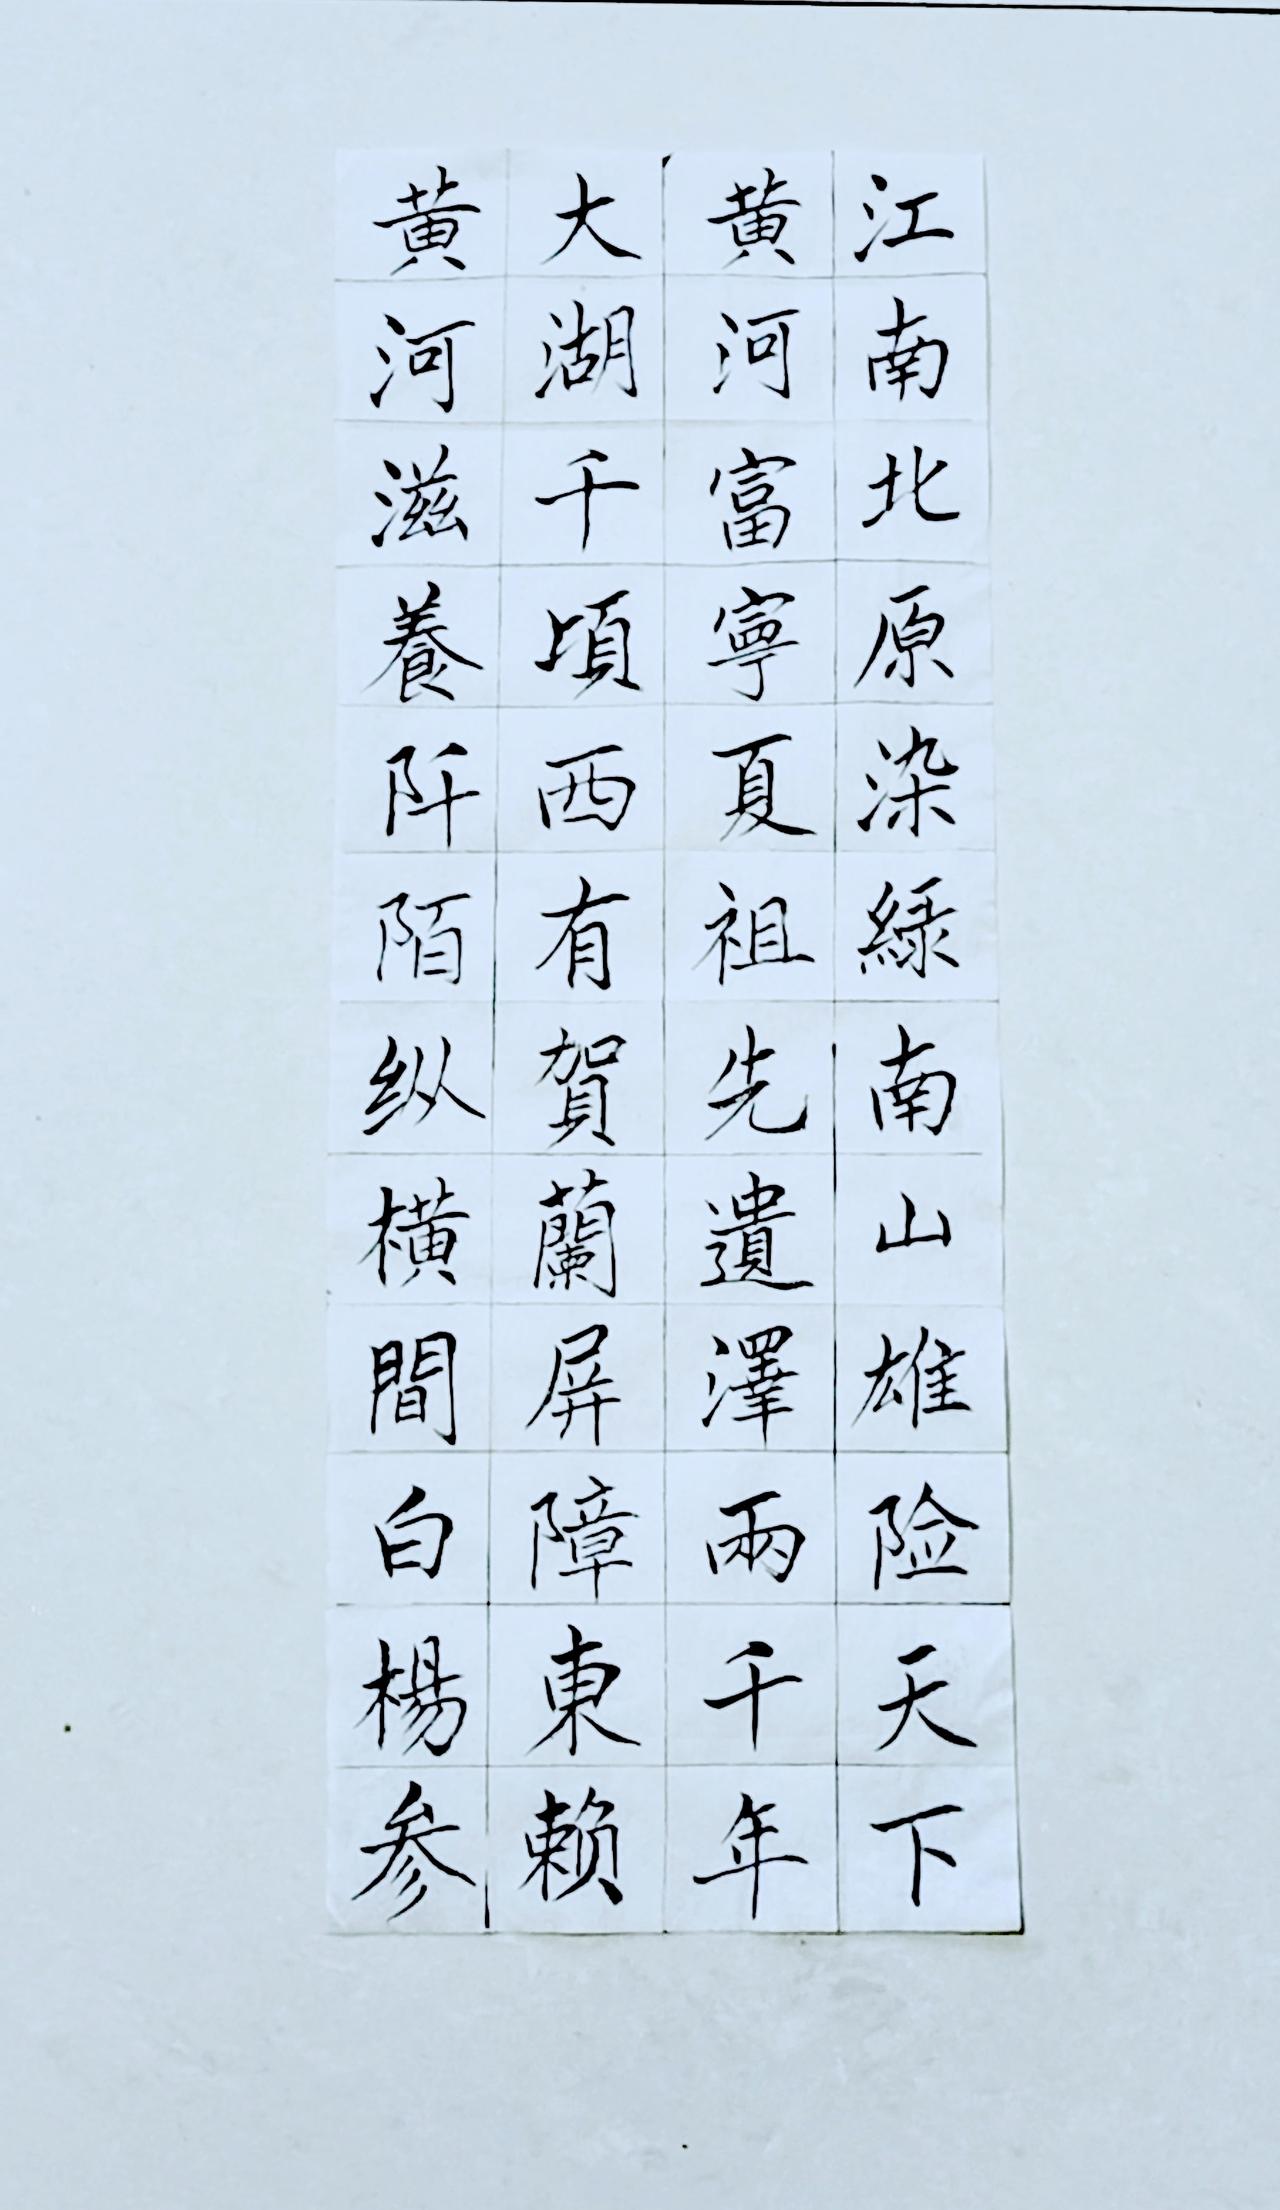 江南北原染緑南山雄险天下
黄河富寧夏祖先遺澤兩千年
大湖千頃西有賀蘭屏障東赖
黄河滋養阡陌纵横間白楊参